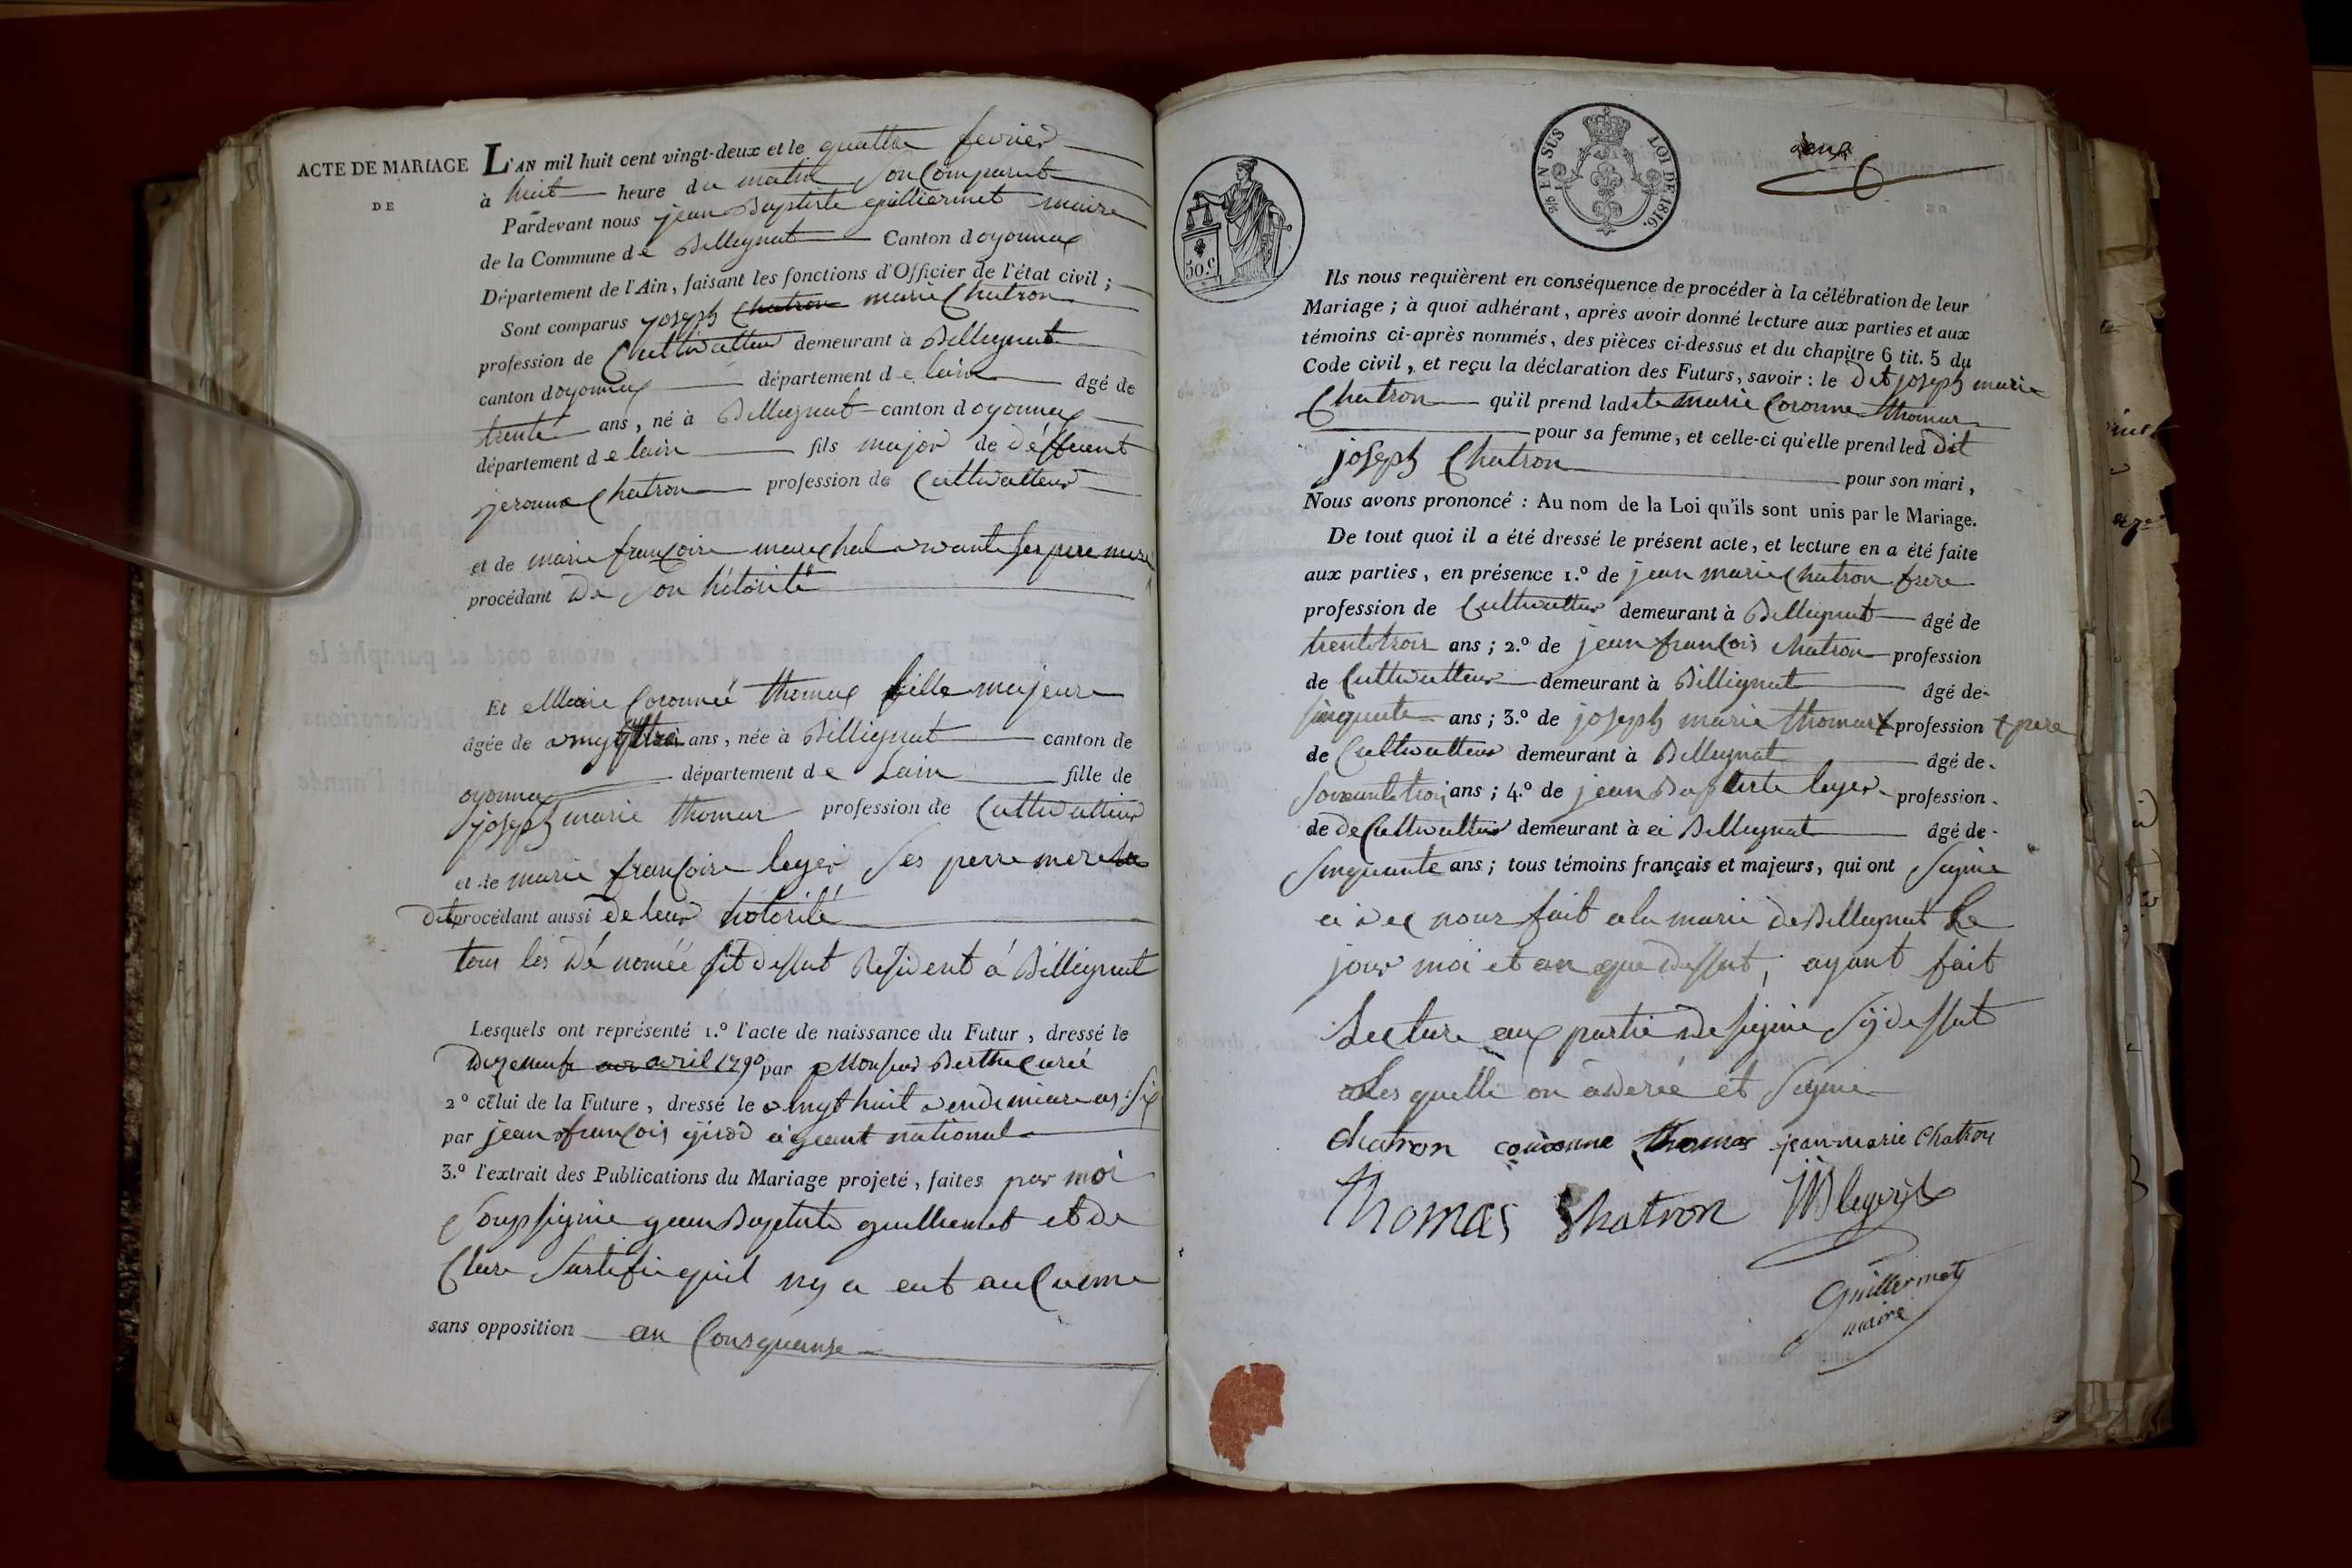 ACTE DE MARIAGE
DE
L'AN mil huit cent vingt-deux et le quattre fevrier
à huit heure du matin son Comparut
Pardevant nous jean Baptiste guilliermet maire
de la Commune de Bellegnat Canton d oyonnax
Département de l'Ain, faisant les fonctions d'Officier de l'état civil;
Sont comparus joseph Chatron marie Chatron
profession de Cultivatteur demeurant à Bellegnat
canton doyonnax département de lain âgé de
trente ans, né à Bellegnat canton d oyonnax
département de lain fils major de deffuent
jeromme Chatron profession de Cultivatteur
et de marie françoise marechal vivante ses pere mere
procédant de son hotorité
Et Marie Coronneé thomas fille majeure
âgée de vingt ans, née à Billiegnat canton de
oyonnax département de Lain fille de
joseph marie thomas profession de Cultivatteur
et de marie françoise leger ses perre mere
dit procédant aussi de leur hotorité
tous les dé nomée sit dessut Résident á Billiegnat
Lesquels ont représenté 1.º l'acte de naissance du Futur, dressé le
dizeneufe avril 1790 par Monsieur Berthe Curéé
2º celui de la Future, dressé le vingt huit vendemiare an six
par jean françois girod a geant national
3.º l'extrait des Publications du Mariage projeté, faites par moi
soupsignie jean Baptiste guilliermet et de
Clare Sartifie quil ny a eut auCuenne
sans opposition an Consquanse
50.c
5/2 EN SUS LOI DE 1816.
deux
Ils nous requièrent en conséquence de procéder à la célébration de leur
Mariage; à quoi adhérant, après avoir donné lecture aux parties et aux
témoins ci-après nommés, des pièces ci-dessus et du chapitre 6 tit. 5 du
Code civil, et reçu la déclaration des Futurs, savoir: le dit joseph marie
Chatron qu'il prend ladite marie Coronne thomas
pour sa femme, et celle-ci qu'elle prend led dit
joseph Chatron pour son mari,
Nous avons prononcé: Au nom de la Loi qu'ils sont unis par le Mariage.
De tout quoi il a été dressé le présent acte, et lecture en a été faite
aux parties, en présence 1.º de jean marie Chatron frere
profession de Cultivatteur demeurant à Bellegnat âgé de
trentetrois ans; 2.º de jean françois chatron profession
de Cultivatteur demeurant à Billignat âgé de
sinquante ans; 3.º de joseph marie thomas profession pere
de Cultivatteur demeurant à Bellegnat âgé de
soixantetroi ans; 4.º de jean Baptiste leger profession
de de Cultivatteur demeurant à ci Bellegnat âgé de
sinquante ans; tous témoins français et majeurs, qui ont signie
a vec nous fait a la marie de Bellegnat Le
jour moi et an que dessut, ayant fait
Lecture aux partie designie sÿ dessut
Les quelle on aderéé et signie
chatron couronne thomas jean marie Chatron
Thomas Chatron JB leger
Guillermet
maire